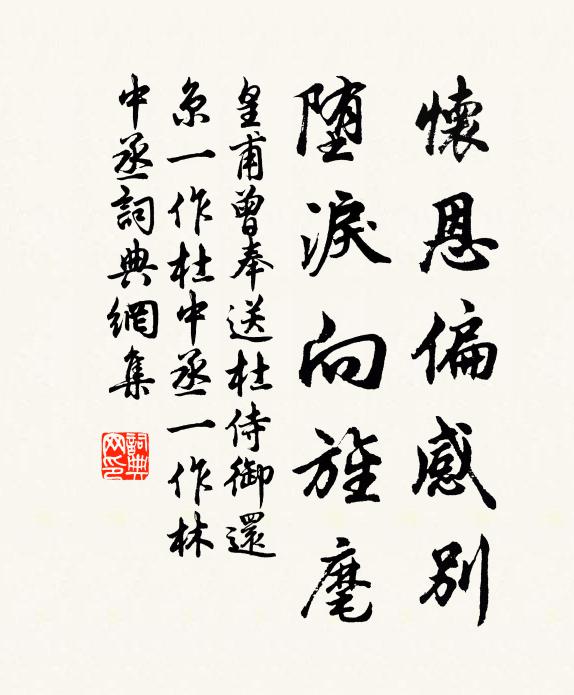 懷恩偏感別
墮淚向旌麾
皇甫曾奉送杜侍御還
京一作杜中丞一作林
中丞詞典網集
詞典
网印